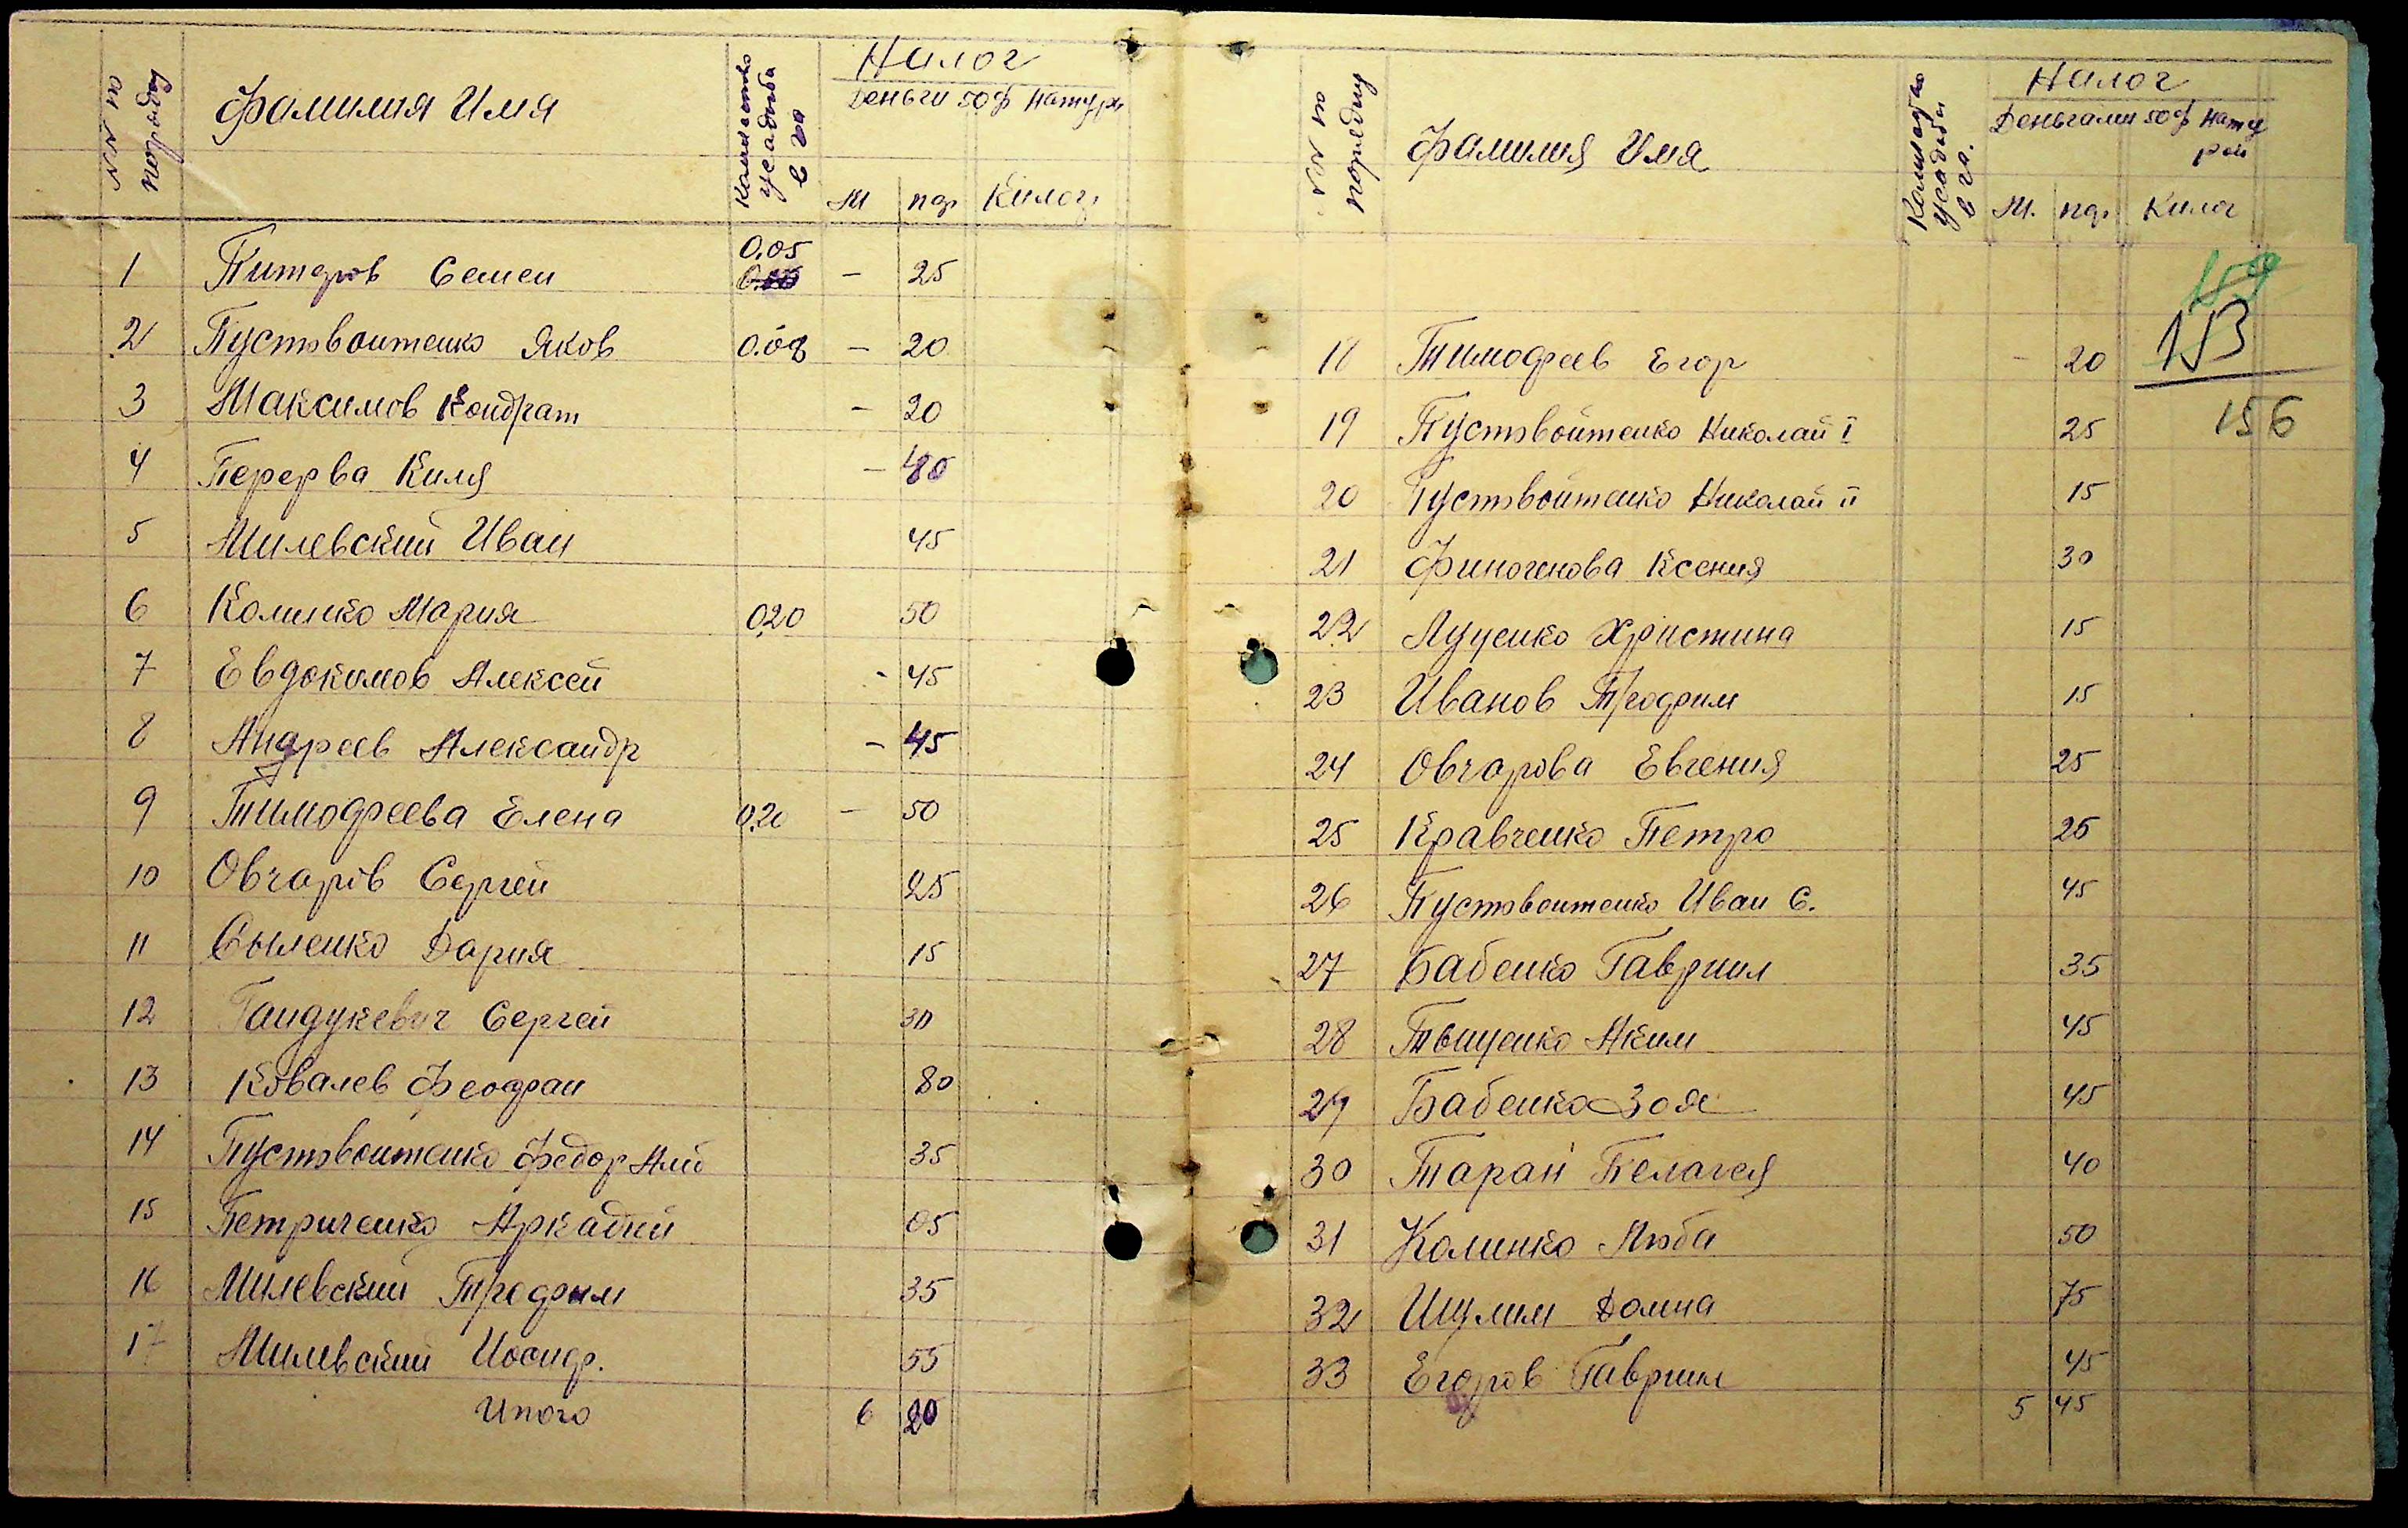 №№ по порядку
Фамилия Имя
Количество усадьбы в га
Налог
Деньги 50ф Натур
М пф. Килог.
1 Питдров Семен 0.05 - 25
2 Пуствоитенко Яков 0.08 - 20
3 Максимов Кондрат - 20
4 Перерва Киля - 40
5 Милевский Иван 45
6 Колинко Мария 020 50
7 Евдокимов Алексей - 45
8 Андреев Александр - 45
9 Тимофеева Елена 0.20 - 50
10 Овчаров Сергей 25
11 Сыленко Дария 15
12 Гандукевич Сергей 30
13 Ковалев Феофан 80
14 Пуствоитенко Федор 35
15 Петриченко Аркадий 05
16 Милевский Трофим 35
17 Милевский Иосиф. 55
Итого 6 20
№№ по порядку
Фамилия Имя
Количество усадьбы в га.
Налог
Деньгами 50ф Нату
рой
М. пф. Килог
18 Тимофеев Егор - 20
153
19 Пуствойтенко Николай I 25
156
20 Пуствойтенко Николай II 15
21 Финогенова Ксения 30
22 Луценко Христина 15
23 Иванов Трофим 15
24 Овчарова Евгения 25
25 Кравченко Петро 25
26 Пуствоитенко Иван С. 45
27 Бабенко Гавриил 35
28 Твищенко Аким 45
29 Бабенко Зоя 45
30 Таран Пелагея 40
31 Колинко Люба 50
32 Шулим Домна 75
33 Егоров Гавриил 45
5 45